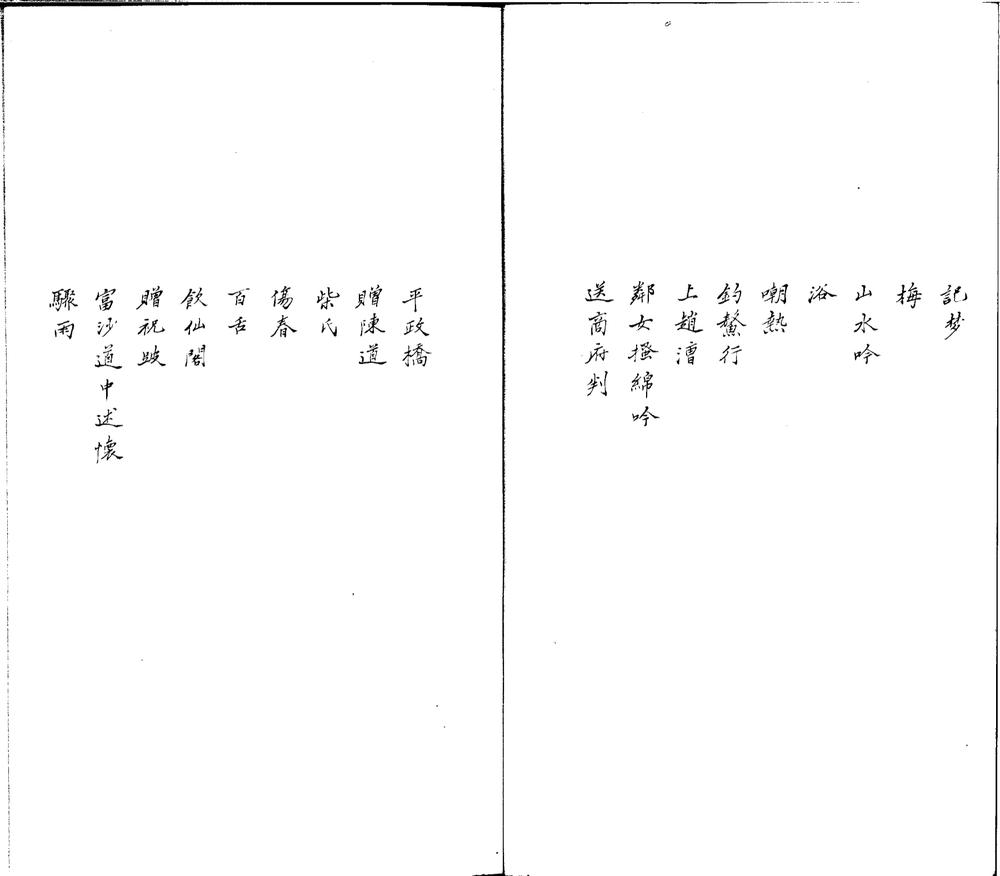 記梦
梅
山水吟
浴
嘲熱
釣鰲行
上趙漕
鄰女搔綿吟
送商府判
平政橋
贈陳道
柴氏
傷春
百舌
飲仙閣
贈祝跛
富沙道中述懷
驟雨